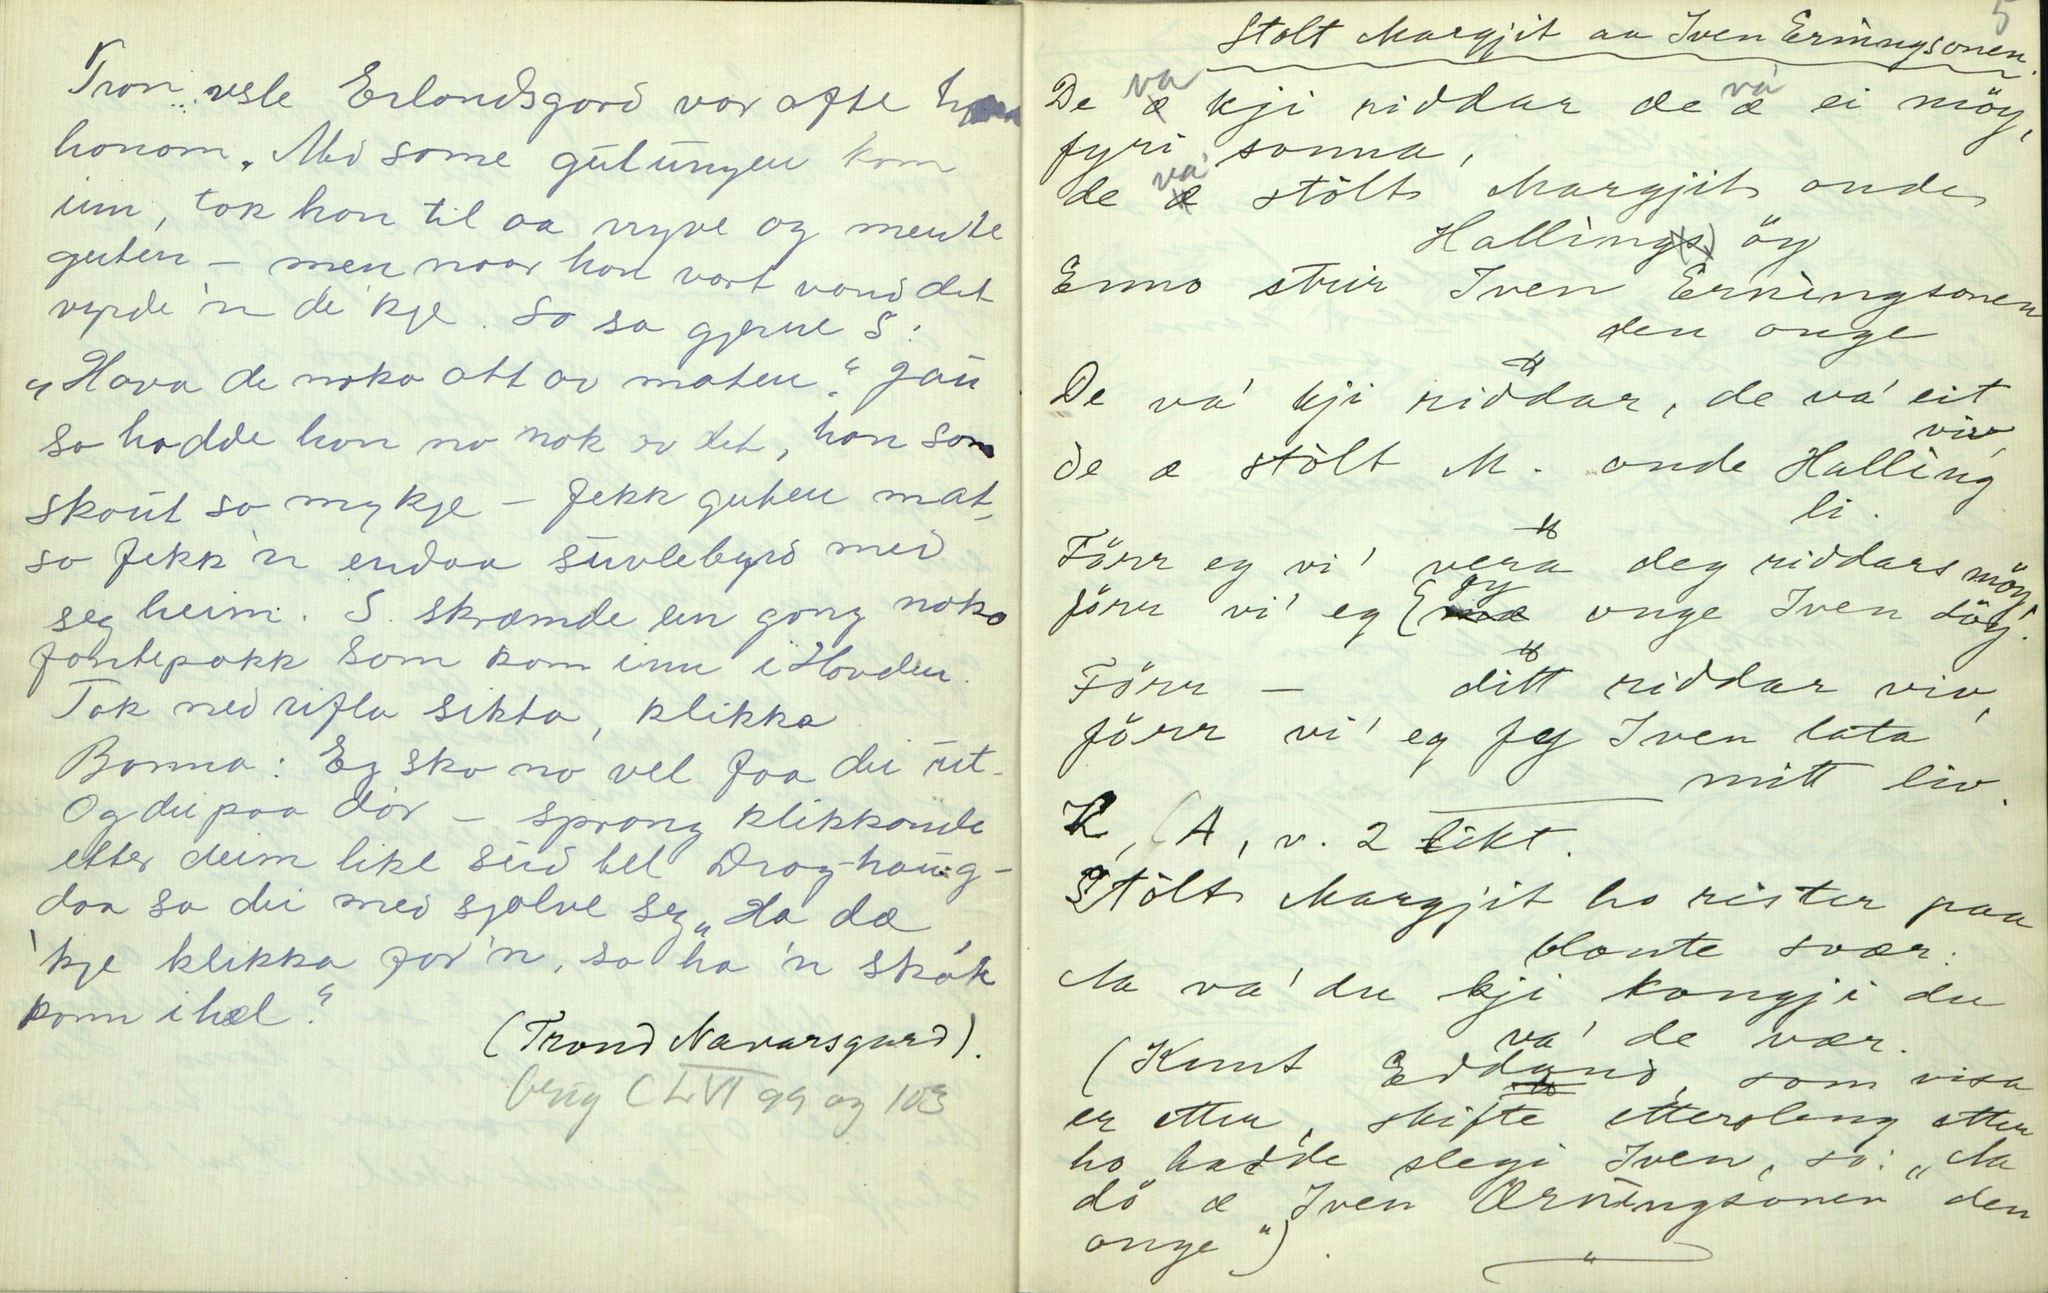 Tron vesle Erlandsgard var ofte hjaa
honom. Med same gutungen kom
inn, tok han til aa ryve og mente
guten – men naar han vart vand det
vyrde 'n de 'kje. So sa gjerne S:
"Hava de noko att av maten." Jau
so hadde han no nok av det, han som
skaut so mykje – fekk guten mat,
so fekk 'n endaa suvlebyrd med
seg heim. S. skræmde ein gong noko
fantepakk som kom inn i Hovden.
Tok ned rifla sikta, klikka
Banna: Eg ska no vel faa dei ut-
Og dei paa dør – sprang klikkande
etter deim like sud tel Draghaug-
daa sa dei med sjølve seg "Ha dæ
'kje klikka for 'n, so ha 'n skote
konn ihæl."
(Trond Navarsgard).
Orig CLVI 99 og 103
5
Stolt Margjit aa Iven Erningsonen.
De va kji riddar de va ei möy,
fyri sanna,
de va' stölt Margjit onde
Halling öy
Enno strir Iven Erningsonen
den onge
De va' kji riddar, de va' eit
viv
de æ stölt M. onde Halling
li.
Förr eg vi' vera deg riddars möy
förr vi' eg fy onge Iven döy.
Förr – ditt riddar viv,
förr vi' eg fy Iven lata
mitt liv.
K, (A, v. 2 likt.
Stölt Margjit ho rister paa
blonte svær:
Na va' du kji kongji du
va' de vær.
(Knut Eddand, som visa
er etter, skifte ettersleng etter
ho hadde slegi Iven, so: "Na
dö æ Iven Ærningsonen den
onge")